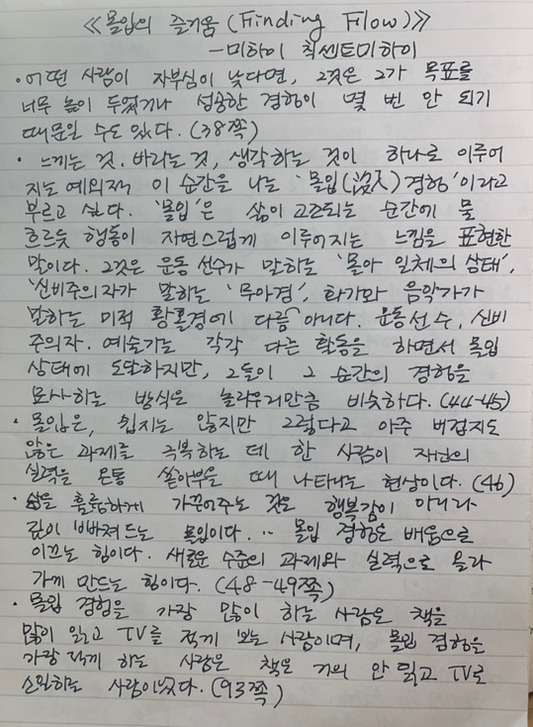 ≪몰입의 즐거움 (Finding Flow)≫
- 미하이 칙센트미하이
· 어떤 사람이 자부심이 낮다면, 그것은 그가 목표를
너무 높이 두었거나 성공한 경험이 몇 번 안 되기
때문일 수도 있다. (38쪽)
· 느끼는 것, 바라는 것, 생각하는 것이 하나로 이루어
지는 예외적 이 순간을 나는 '몰입(沒入) 경험'이라고
부르고 싶다. '몰입'은 삶이 고조되는 순간에 물
흐르듯 행동이 자연스럽게 이루어지는 느낌을 표현한
말이다. 그것은 운동 선수가 말하는 '몰아 일체의 상태',
'신비주의자가 말하는 '무아경', 화가와 음악가가
말하는 미적 황홀경에 다름 아니다. 운동선수, 신비
주의자, 예술가는 각각 다른 활동을 하면서 몰입
상태에 도달하지만, 그들이 그 순간의 경험을
묘사하는 방식은 놀라우리만큼 비슷하다. (44-45)
· 몰입은, 쉽지는 않지만 그렇다고 아주 버겁지도
않은 과제를 극복하는 데 한 사람이 자신의
실력을 온통 쏟아부을 때 나타나는 현상이다. (46)
· 삶을 훌륭하게 가꾸어주는 것은 행복감이 아니라
깊이 빠져드는 몰입이다. … 몰입 경험은 배움으로
이끄는 힘이다. 새로운 수준의 과제와 실력으로 올라
가게 만드는 힘이다. (48-49쪽)
· 몰입 경험을 가장 많이 하는 사람은 책을
많이 읽고 TV를 적게 보는 사람이며, 몰입 경험을
가장 적게 하는 사람은 책은 거의 안 읽고 TV로
소일하는 사람이었다. (93쪽)